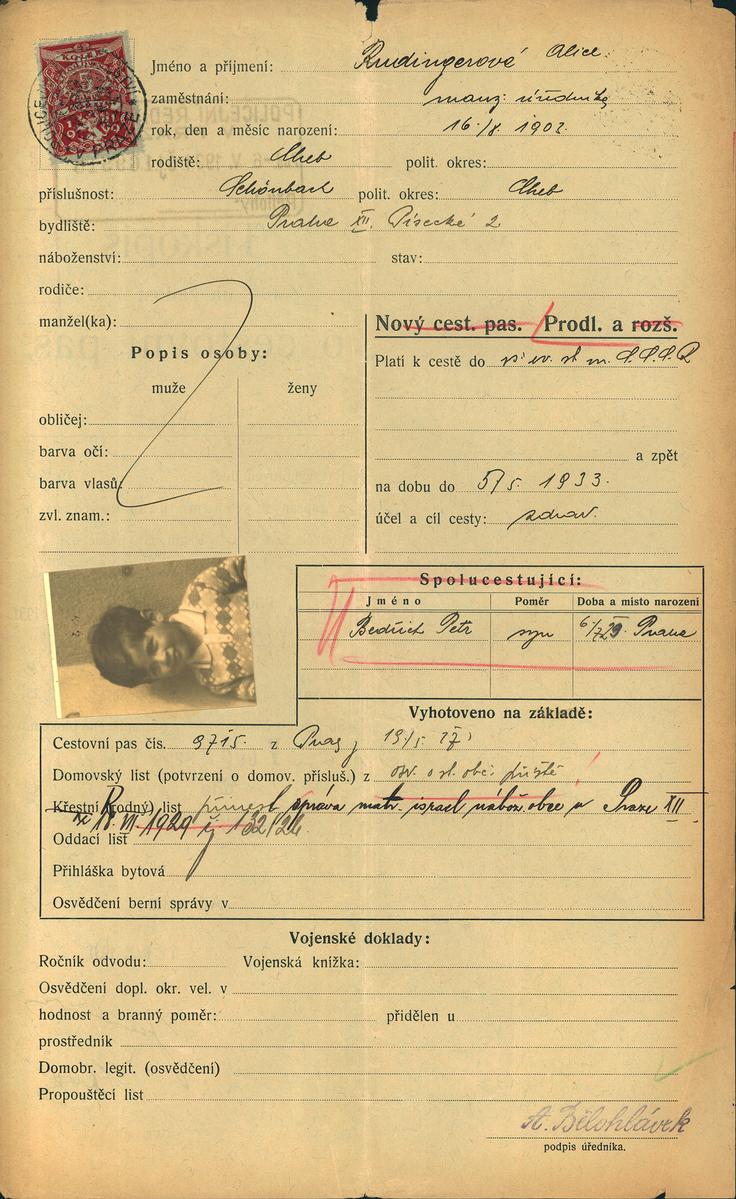 Jméno a příjmení: Rudingerové Alice
zaměstnání: manž. úředníka
rok, den a měsíc narození: 16./8. 1902.
rodiště: Cheb polit. okres:
příslušnost: Schönbach polit. okres: Cheb
bydliště: Praha XII, Písecká 2
náboženství: stav:
rodiče:
manžel(ka):
Popis osoby:
muže ženy
obličej:
barva očí:
barva vlasů:
zvl. znam.:
Nový cest. pas. Prodl. a rozš.
Platí k cestě do ev. st m. S.S.S.R
a zpět
na dobu do 5/5. 1933.
účel a cíl cesty: zdrav.
Spolucestující:
Jméno Poměr Doba a místo narození
Bedřich Petr syn Praha
Vyhotoveno na základě:
Cestovní pas čís. 9715. z Prag 19/5.
Domovský list (potvrzení o domov. přísluš.) z osv. o st. obč. příště!
Křestní (Rodný) list přinesl správa matr. israel. nábož. obce v Praze XII
VI. 1929 č. 132/
Oddací list
Přihláška bytová
Osvědčení berní správy v
Vojenské doklady:
Ročník odvodu: Vojenská knížka:
Osvědčení dopl. okr. vel. v
hodnost a branný poměr: přidělen u
prostředník
Domobr. legit. (osvědčení)
Propouštěcí list
A. Bělohlávek
podpis úředníka.